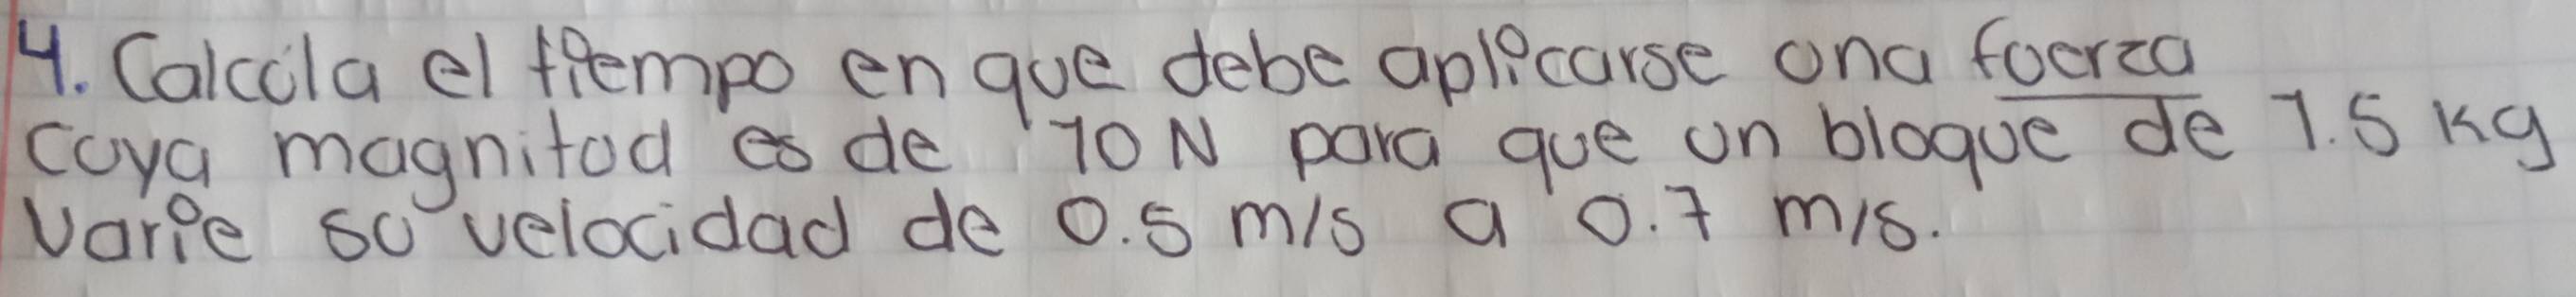 4. Calcula el tiempo en que debe aplicarse una fuerza
cuya magnitud es de 10 N para que un bloque de 1.5 kg
varie su velocidad de 0.5 m/s a 0.7 m/s.